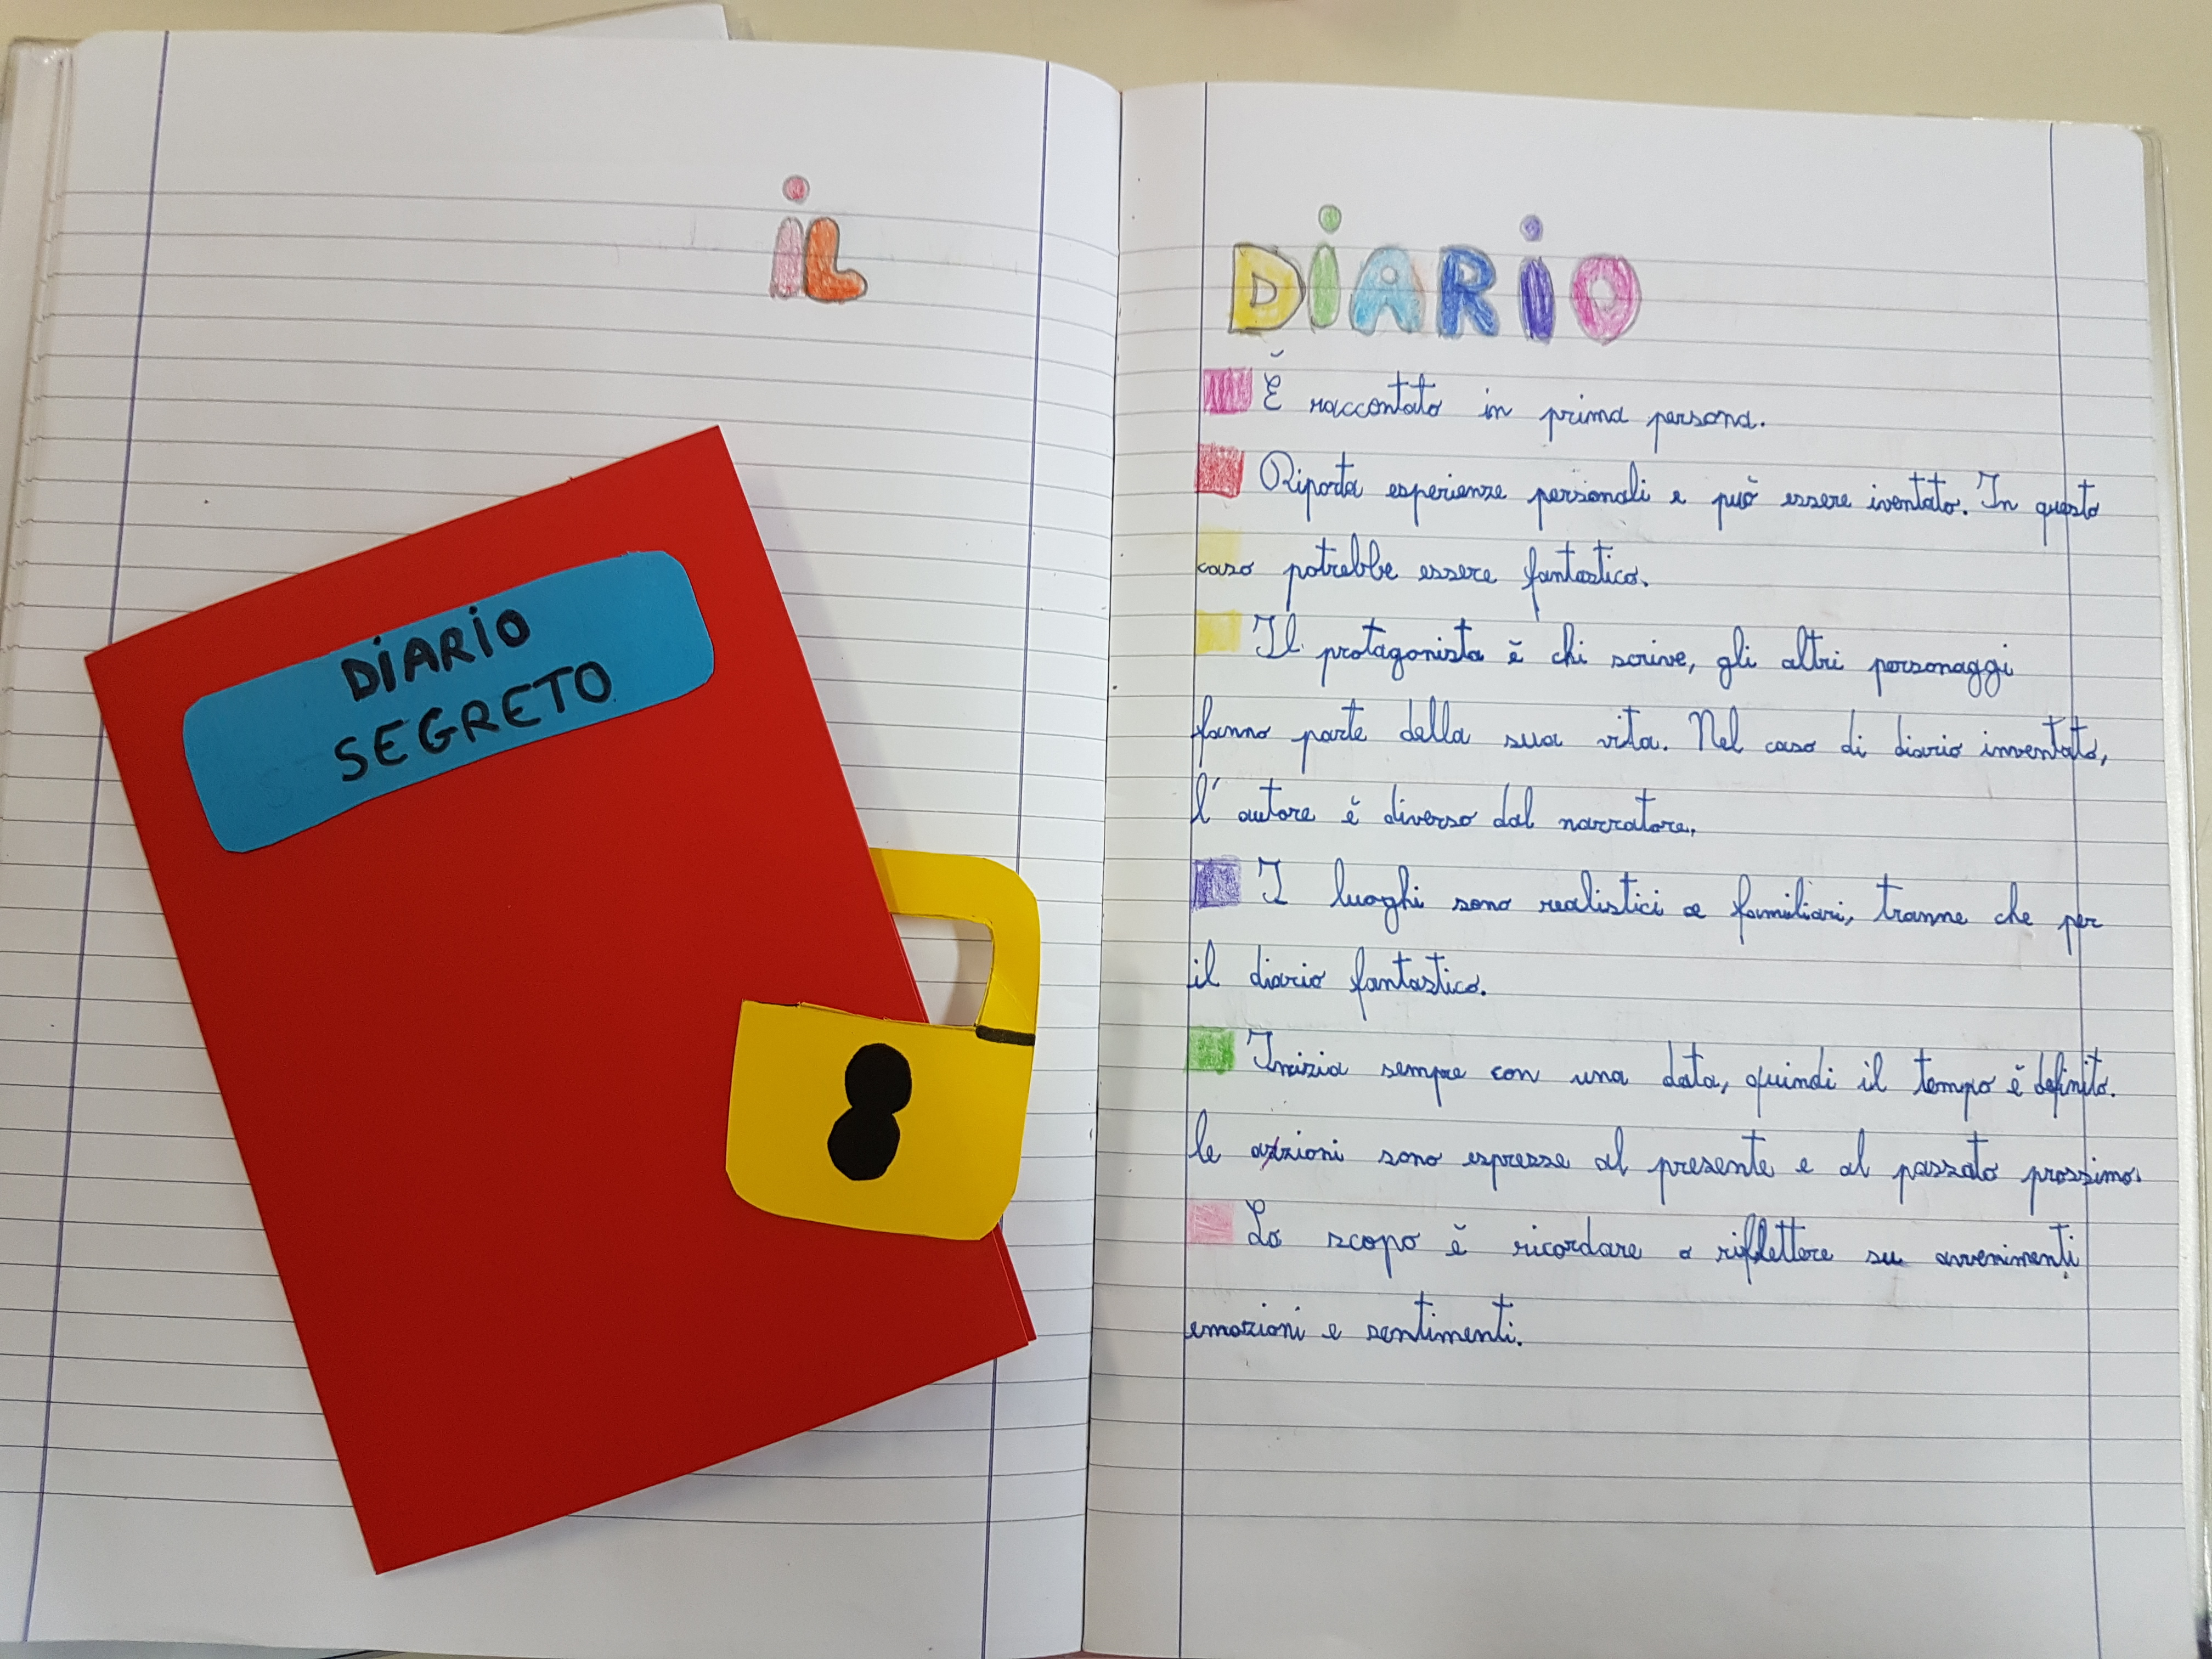 iL
DiARiO
DiARiO
SEGRETO
È raccontato in prima persona.
Riporta esperienze personali e può essere iventato. In questo
caso potrebbe essere fantastico.
Il protagonista è chi scrive, gli altri personaggi
fanno parte della sua vita. Nel caso di diario inventato,
l'autore è diverso dal narratore.
I luoghi sono realistici e familiari, tranne che per
il diario fantastico.
Inizia sempre con una data, quindi il tempo è definito.
le azioni sono espresse al presente e al passato prossimo.
Lo scopo è ricordare o riflettere su avvenimenti,
emozioni e sentimenti.